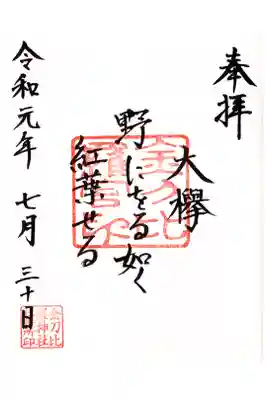 奉拝
大欅
野にをる如く
紅葉せる
令和元年 七月 三十日
金刀比